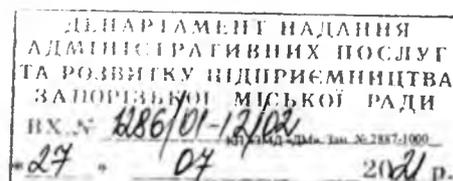 ДЕПАРТАМЕНТ НАДАННЯ
АДМІНІСТРАТИВНИХ ПОСЛУГ
ТА РОЗВИТКУ ПІДПРИЄМНИЦТВА
ЗАПОРІЗЬКОЇ МІСЬКОЇ РАДИ
ВХ.№ 1286/01-12/02
Зам. № 2887-1000
"27" 07 2021 р.